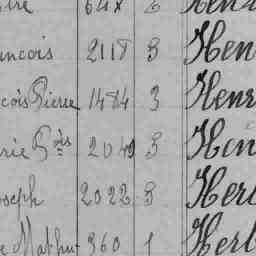 ancois 2118 3 Hen
çois Pierre 1484 3 Henr
rie Gois 2049 3 Hen
oseph 2022 3 Herb
e Mathu 360 1 Herb